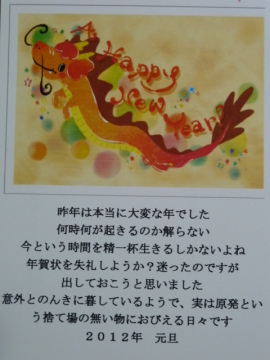 A Happy
New Year!
昨年は本当に大変な年でした
何時何が起きるのか解らない
今という時間を精一杯生きるしかないよね
年賀状を失礼しようか？迷ったのですが
出しておこうと思いました
意外とのんきに暮しているようで、実は原発とい
う捨て場の無い物におびえる日々です
２０１２年　元旦